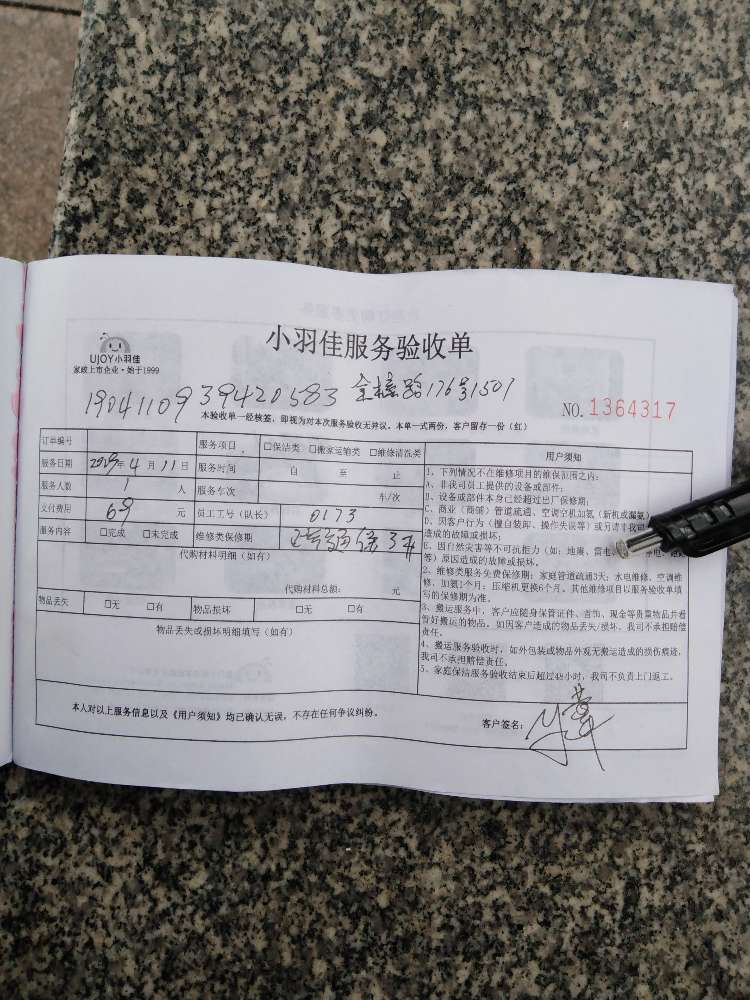 小羽佳服务验收单
UJOY小羽佳
家政上市企业·始于1999
1904110939420583 金榜路176号1501
NO.1364317
本验收单一经核签，即视为对本次服务验收无异议。本单一式两份，客户留存一份（红）
订单编号 服务项目 □保洁类 □搬家运输类 □维修清洗类
服务日期 2019年4月11日 服务时间 自 至 止
服务人数 1人 服务车次 车/次
支付费用 69元 员工工号（队长） 0173
服务内容 □完成 □未完成 维修类保修期 保3天
代购材料明细（如有）
代购材料总额： 元
物品丢失 □无 □有 物品损坏 □无 □有
物品丢失或损坏明细填写（如有）
用户须知
1、下列情况不在维修项目的维保范围之内：
A、非我司员工提供的设备或部件；
B、设备或部件本身已经超过出厂保修期；
C、商业（商铺）管道疏通、空调空机加氟（新机或漏氟）
D、因客户行为（擅自装卸、操作失误等）或另请非我司
造成的故障或损坏；
E、因自然灾害等不可抗力（如：地震、雷电
等）原因造成的故障或损坏。
2、维修类服务免费保修期：家庭管道疏通3天；水电维修、空调维
修、加氟1个月；压缩机更换6个月。其他维修项目以服务验收单填
写的保修期为准。
3、搬运服务中，客户应随身保管证件、首饰、现金等贵重物品并看
管好搬运的物品。如因客户造成的物品丢失/损坏，我司不承担赔偿
责任。
4、搬运服务验收时，如外包装或物品外观无搬运造成的损伤痕迹，
我司不承担赔偿责任。
5、家庭保洁服务验收结束后超过48小时，我司不负责上门返工。
本人对以上服务信息以及《用户须知》均已确认无误，不存在任何争议纠纷。
客户签名：